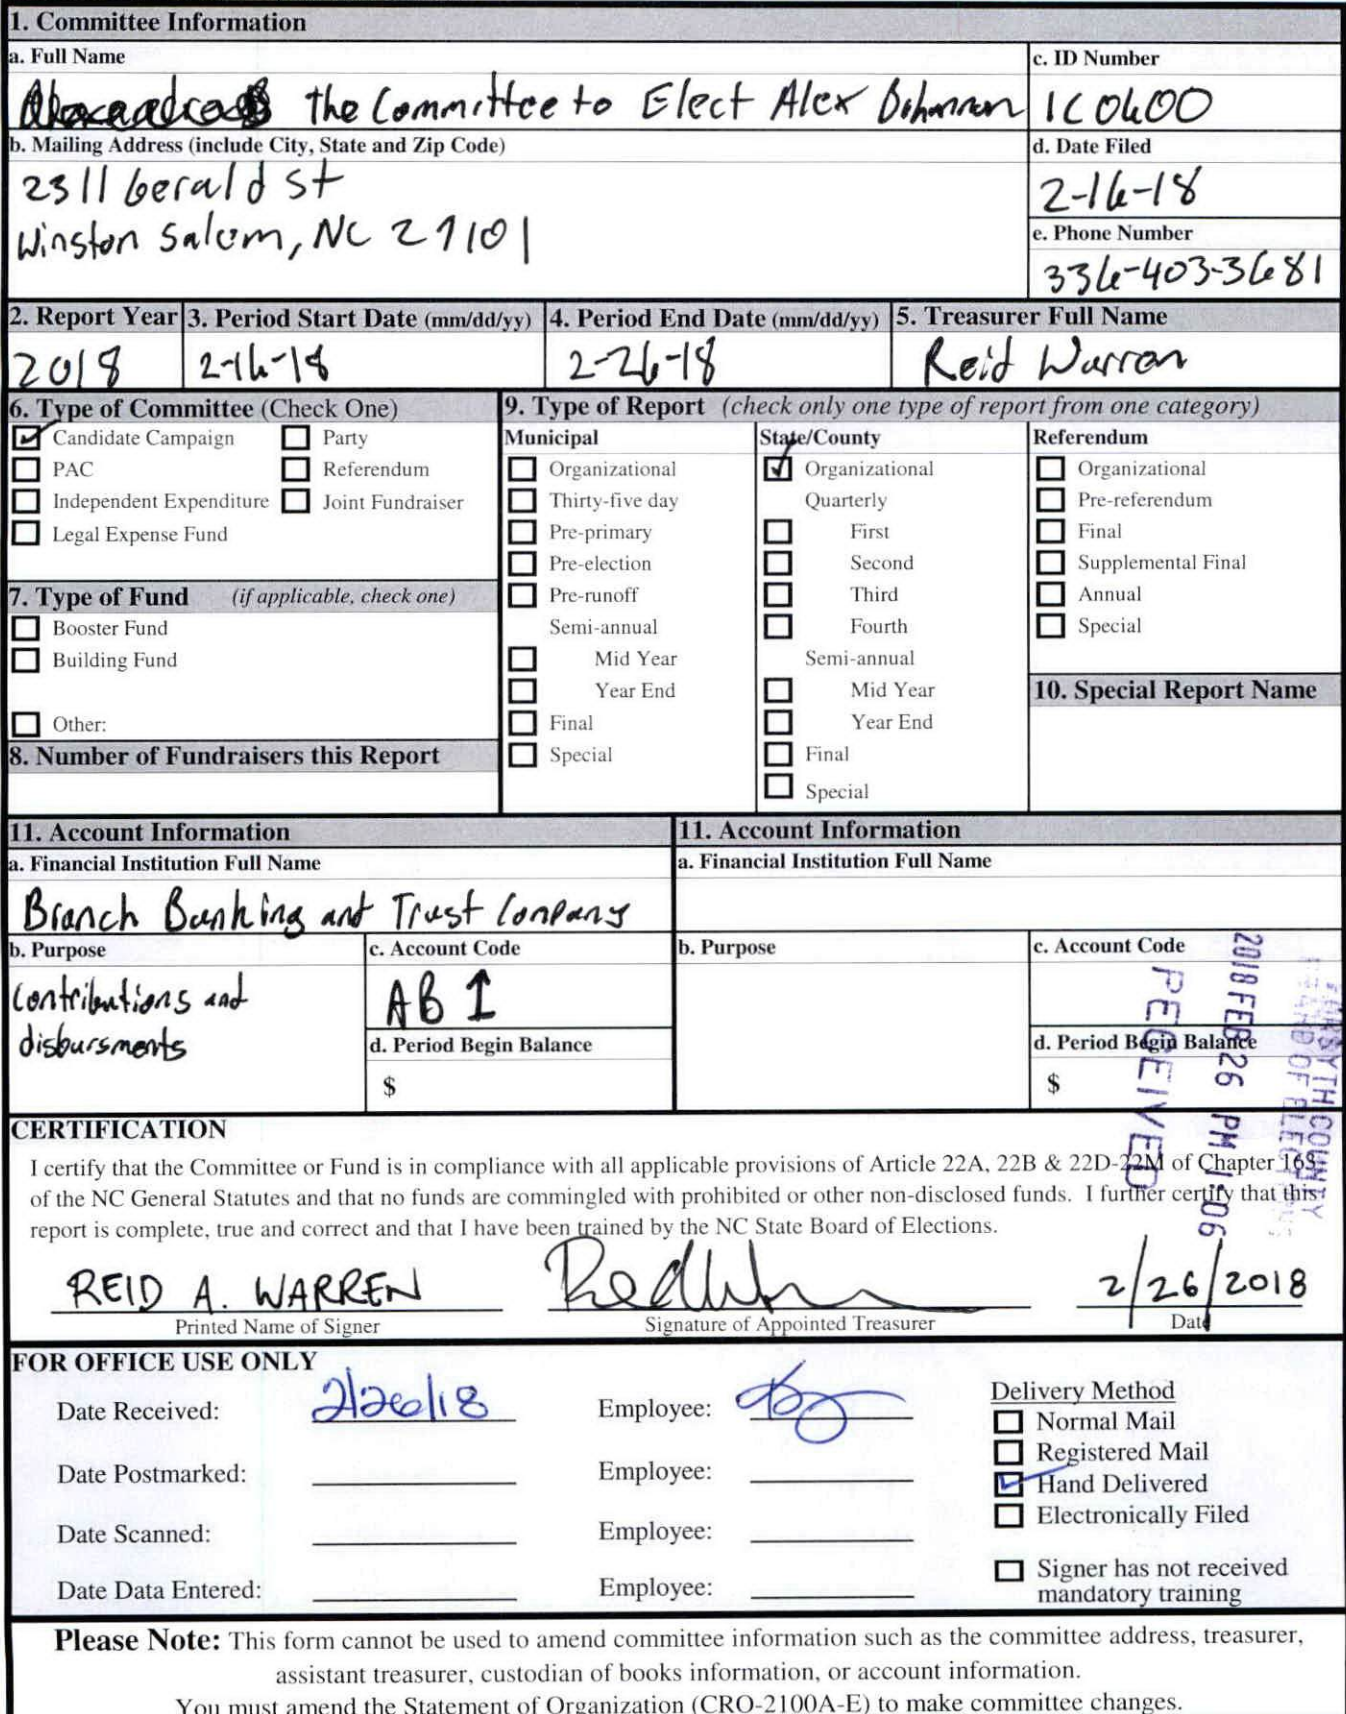 1. Committee Information
a. Full Name
the Committee to Elect Alex Bohannon
c. ID Number
1C0600
b. Mailing Address (include City, State and Zip Code)
2311 Gerald St
Winston Salem, NC 27101
d. Date Filed
2-16-18
e. Phone Number
336-403-3681
2. Report Year
2018
3. Period Start Date (mm/dd/yy)
2-16-18
4. Period End Date (mm/dd/yy)
2-26-18
5. Treasurer Full Name
Reid Warren
6. Type of Committee (Check One)
Candidate Campaign
Party
PAC
Referendum
Independent Expenditure
Joint Fundraiser
Legal Expense Fund
7. Type of Fund (if applicable, check one)
Booster Fund
Building Fund
Other:
8. Number of Fundraisers this Report
9. Type of Report (check only one type of report from one category)
Municipal
Organizational
Thirty-five day
Pre-primary
Pre-election
Pre-runoff
Semi-annual
Mid Year
Year End
Final
Special
State/County
Organizational
Quarterly
First
Second
Third
Fourth
Semi-annual
Mid Year
Year End
Final
Special
Referendum
Organizational
Pre-referendum
Final
Supplemental Final
Annual
Special
10. Special Report Name
11. Account Information
a. Financial Institution Full Name
Branch Banking and Trust Company
b. Purpose
Contributions and
disbursments
c. Account Code
AB 1
d. Period Begin Balance
$
11. Account Information
a. Financial Institution Full Name
b. Purpose
c. Account Code
d. Period Begin Balance
$
FORSYTH COUNTY
BOARD OF ELECTIONS
2018 FEB 26 PM 1:06
RECEIVED
CERTIFICATION
I certify that the Committee or Fund is in compliance with all applicable provisions of Article 22A, 22B & 22D-22M of Chapter 163
of the NC General Statutes and that no funds are commingled with prohibited or other non-disclosed funds. I further certify that this
report is complete, true and correct and that I have been trained by the NC State Board of Elections.
REID A. WARREN
2/26/2018
Printed Name of Signer
Signature of Appointed Treasurer
Date
FOR OFFICE USE ONLY
Date Received: 2/26/18
Employee:
Date Postmarked:
Employee:
Date Scanned:
Employee:
Date Data Entered:
Employee:
Delivery Method
Normal Mail
Registered Mail
Hand Delivered
Electronically Filed
Signer has not received
mandatory training
Please Note: This form cannot be used to amend committee information such as the committee address, treasurer,
assistant treasurer, custodian of books information, or account information.
You must amend the Statement of Organization (CRO-2100A-E) to make committee changes.